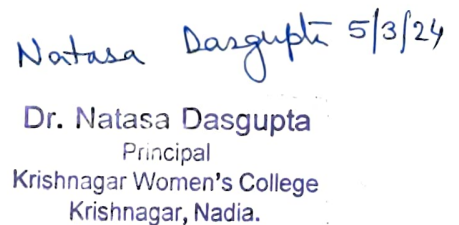 Natasa Dasgupta 5/3/24
Dr. Natasa Dasgupta
Principal
Krishnagar Women's College
Krishnagar, Nadia.